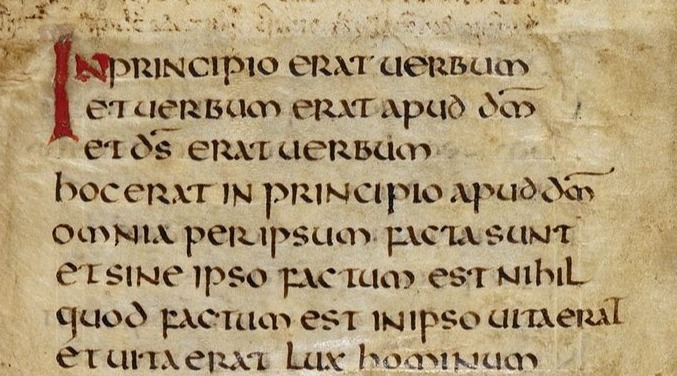 IN PRINCIPIO ERAT UERBUM
ET UERBUM ERAT APUD dm̄
ET ds̄ ERAT UERBUM
hOC ERAT IN PRINCIPIO APUD dm̄
OMNIA PER IPSUM FACTA SUNT
ET SINE IPSO FACTUM EST NIhIL
QUOd FACTUM EST IN IPSO UITA ERAT
ET UITA ERAT LUX hOMINUM